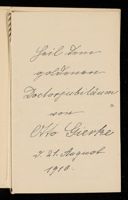 Heil dem
goldenen
Doctorjubiläum
von
Otto Gierke
d. 21. August
1910.